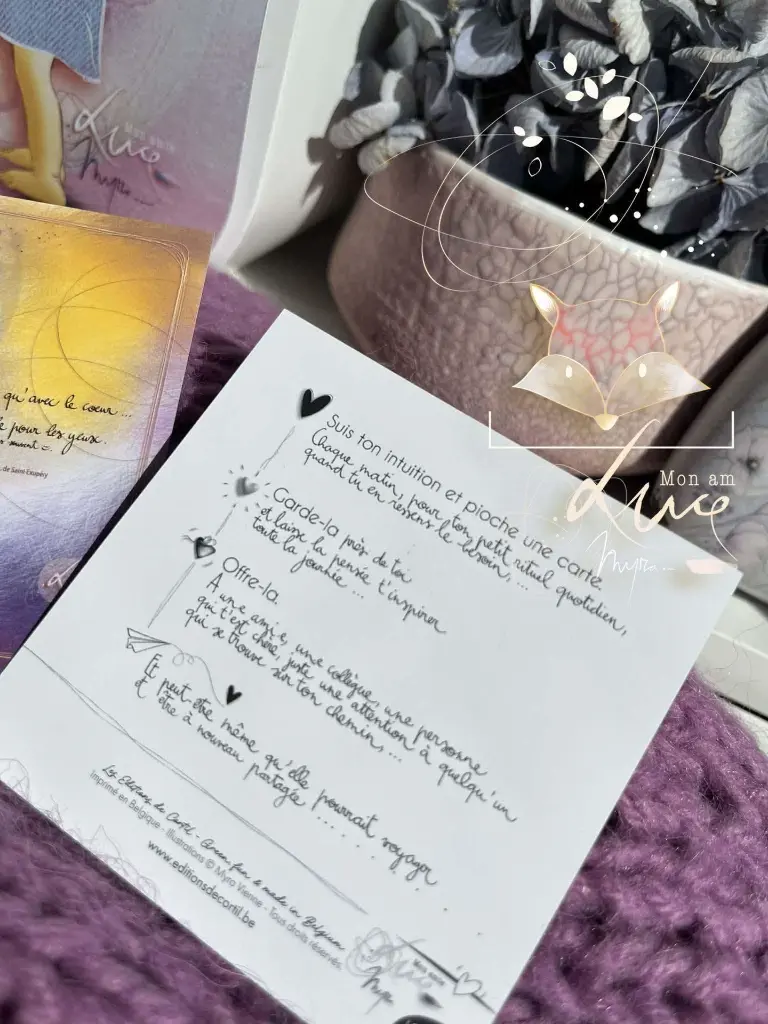 Mon amie
Luce
Myra...
qu'avec le cœur...
pour les yeux.
de Saint Exupéry
Suis ton intuition et pioche une carte
Chaque matin, pour ton petit rituel quotidien,
quand tu en ressens le besoin, ...
Garde-la près de toi
et laisse la pensée t'inspirer
toute la journée ...
Offre-la.
A une amie, une collègue, une personne
qui t'est chère, juste une attention à quelqu'un
qui se trouve sur ton chemin, ...
Et peut-être même qu'elle pourrait voyager
et être à nouveau partagée ......
Les Editions du Cortil - made in Belgium
Imprimé en Belgique - Illustrations © Myra Vienne - Tous droits réservés
www.editionsdecortil.be
Mon amie
Luce
Mon am
Luce
Myra...